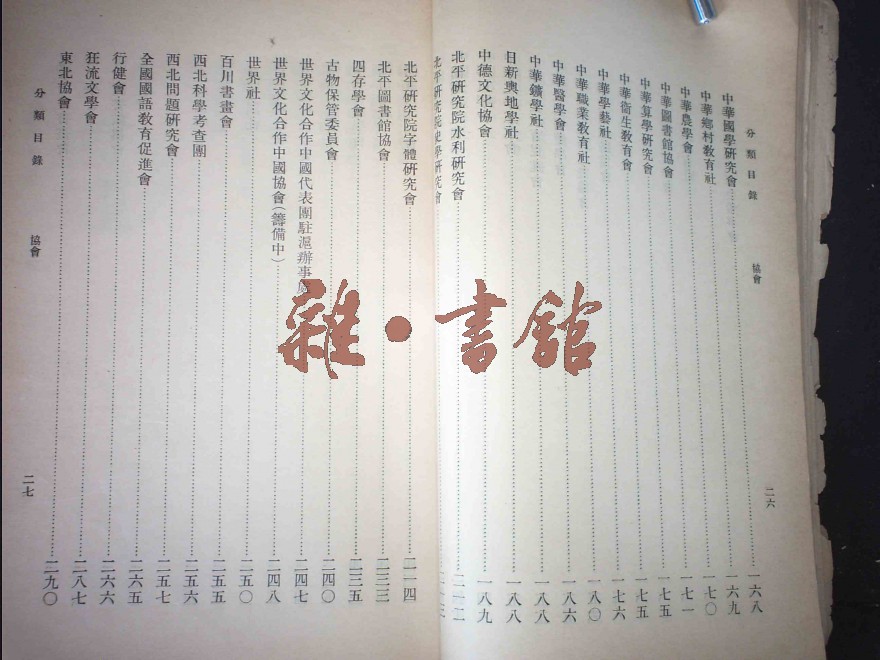 分類目錄 協會 二六
中華國學研究會…………一六八
中華鄉村教育社…………一六九
中華農學會…………一七〇
中華圖書館協會…………一七一
中華算學研究會…………一七五
中華衞生教育會…………一七五
中華學藝社…………一七六
中華職業教育社…………一八〇
中華醫學會…………一八六
中華鑛學社…………一八八
日新輿地學社…………一八八
中德文化協會…………一八九
北平研究院水利研究會…………二一二
北平研究院史學研究會…………二一三
北平研究院字體研究會…………二一四
北平圖書館協會…………二三三
四存學會…………二三五
古物保管委員會…………二四〇
世界文化合作中國代表團駐滬辦事處…………二四七
世界文化合作中國協會(籌備中)…………二四八
世界社…………二五〇
百川書畫會…………二五五
西北科學考查團…………二五六
西北問題研究會…………二五七
全國國語教育促進會…………二六五
行健會…………二六六
狂流文學會…………二八七
東北協會…………二九〇
分類目錄 協會 二七
雜·書館